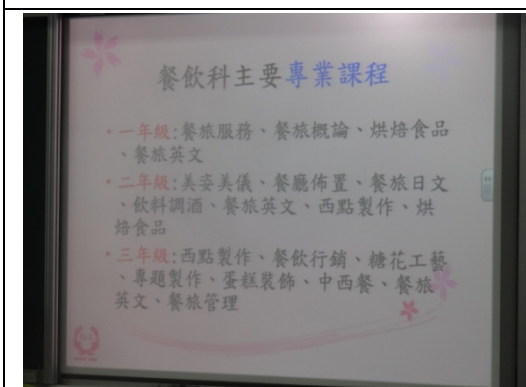 餐飲科主要專業課程
•一年級:餐旅服務、餐旅概論、烘焙食品
、餐旅英文
•二年級:美姿美儀、餐廳佈置、餐旅日文
、飲料調酒、餐旅英文、西點製作、烘
焙食品
•三年級:西點製作、餐飲行銷、糖花工藝
、專題製作、蛋糕裝飾、中西餐、餐旅
英文、餐旅管理